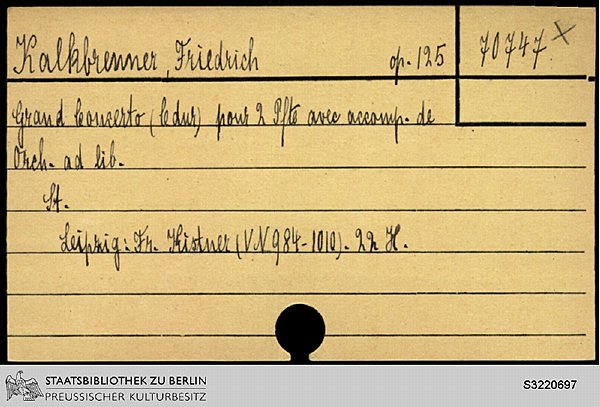 Kalkbrenner, Friedrich op. 125 70747 x
Grand Concerto (C dur) pour 2 Pfte avec accomp. de
Orch. ad lib.
St.
Leipzig: Fr. Kistner (V.N 984-1010). 22 H.
STAATSBIBLIOTHEK ZU BERLIN
PREUSSISCHER KULTURBESITZ
S3220697